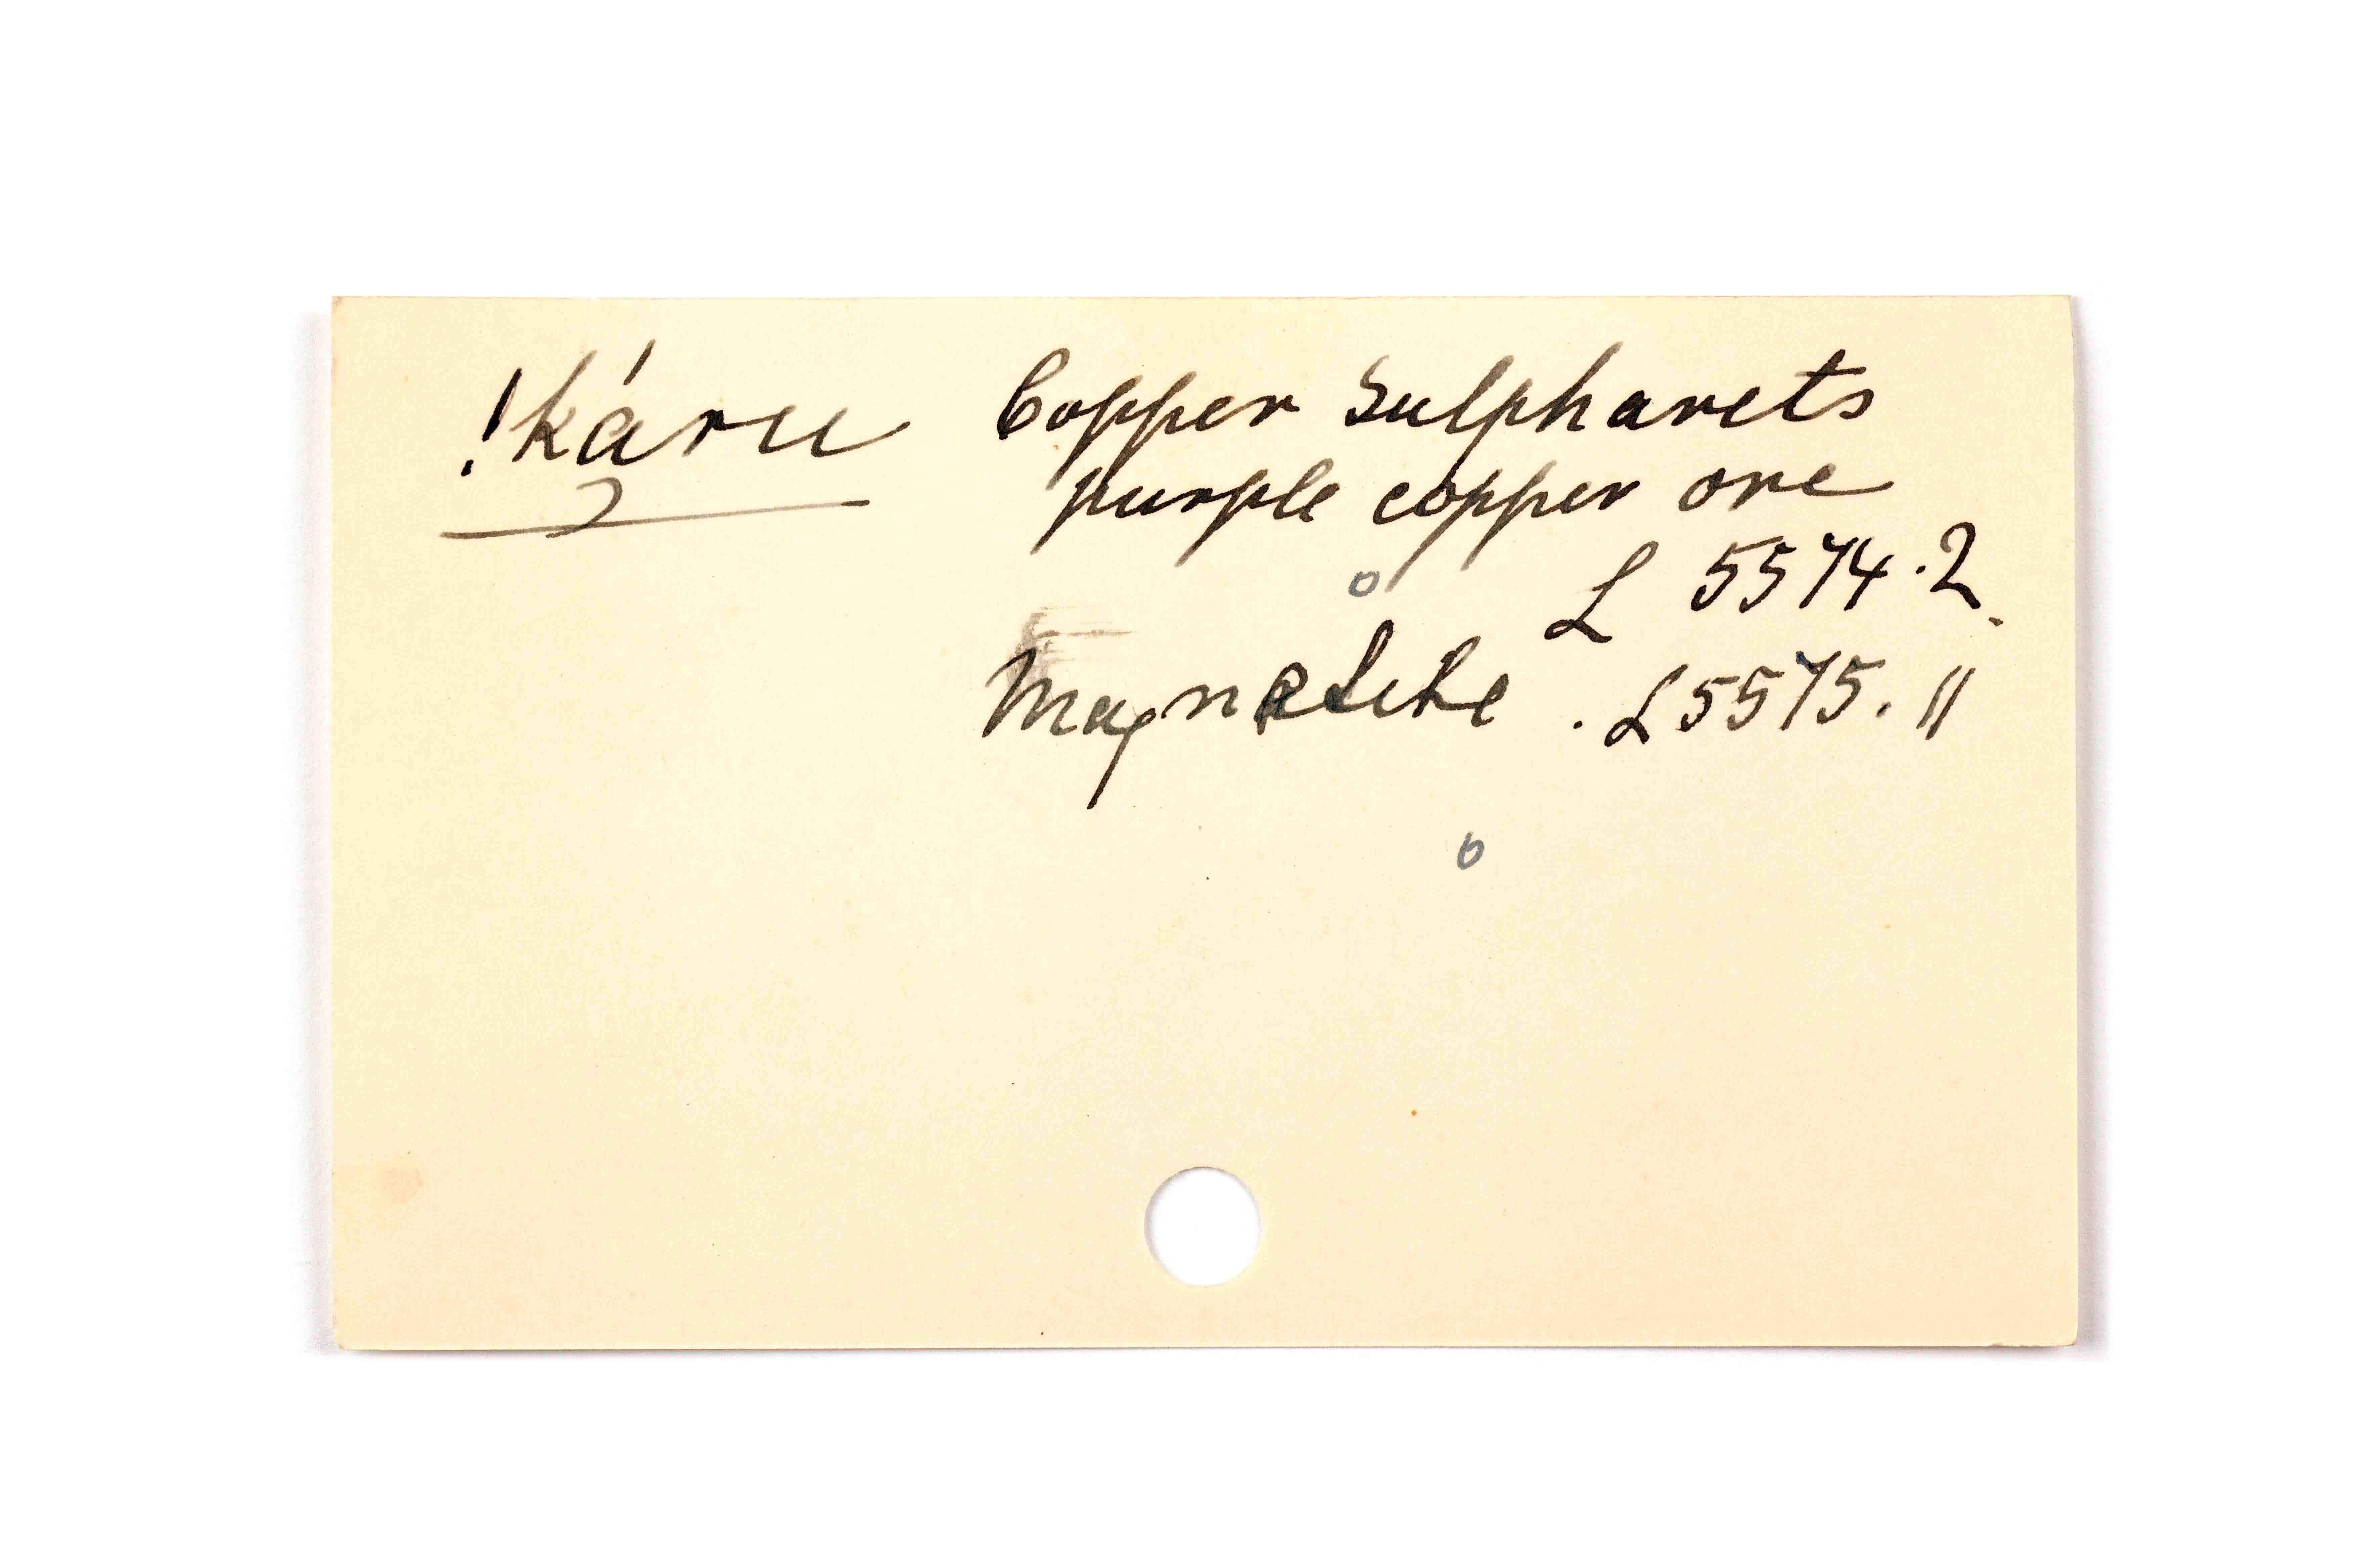 !káru Copper Sulpharets
purple copper ore
L 5574.2.
Magnetite . L5575. 11